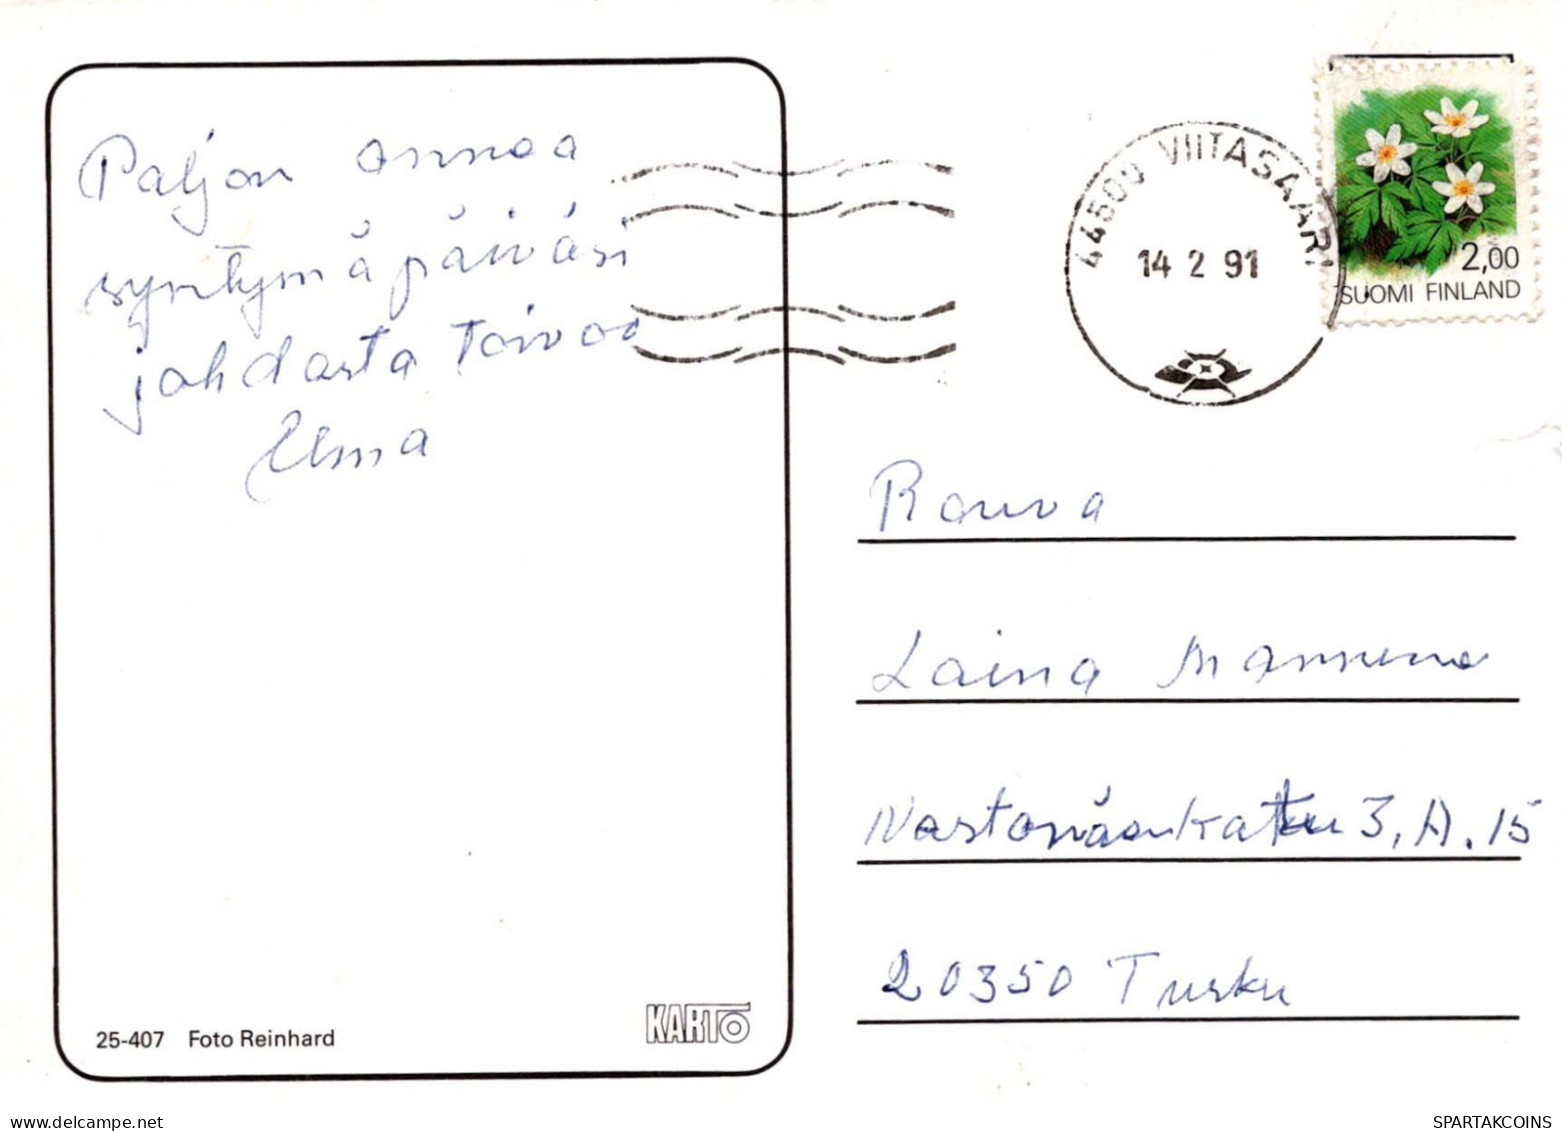 Paljon onnea
syntymäpäiväsi
johdosta toivoo
Elma
25-407 Foto Reinhard
KARTO
44500 VIITASAARI
14 2 91
2,00
SUOMI FINLAND
Rouva
Laina Manninen
3, A. 15
20350 Turku
SPARTAKCOINS